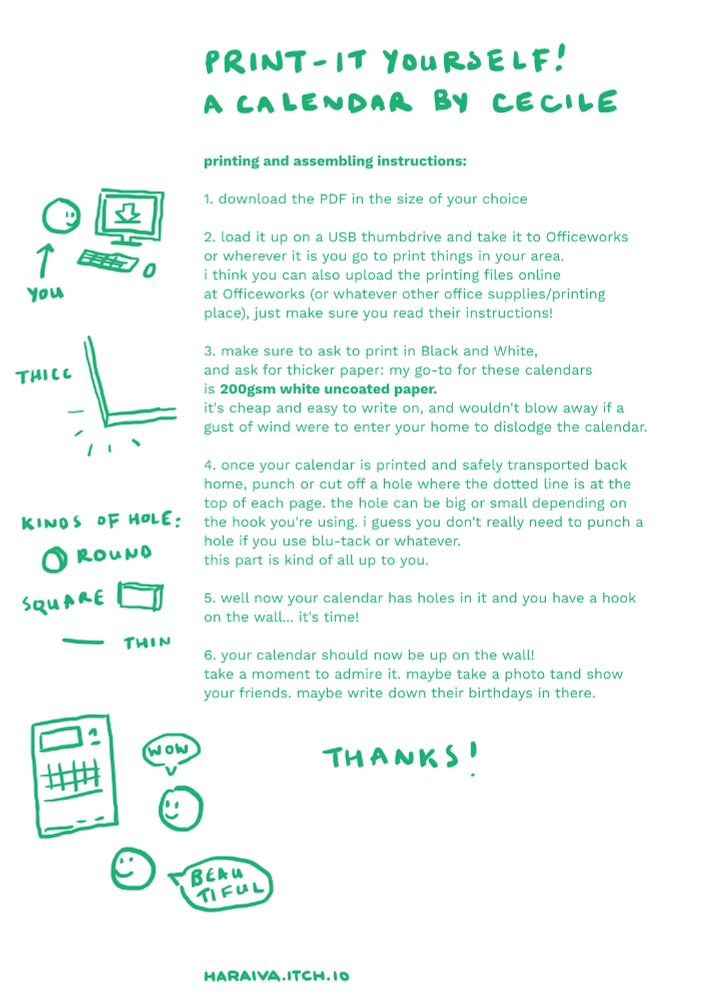 PRINT-IT YOURSELF!
A CALENDAR BY CECILE
printing and assembling instructions:
1. download the PDF in the size of your choice
2. load it up on a USB thumbdrive and take it to Officeworks
or wherever it is you go to print things in your area.
i think you can also upload the printing files online
at Officeworks (or whatever other office supplies/printing
place), just make sure you read their instructions!
YOU
3. make sure to ask to print in Black and White,
and ask for thicker paper: my go-to for these calendars
is 200gsm white uncoated paper.
it's cheap and easy to write on, and wouldn't blow away if a
gust of wind were to enter your home to dislodge the calendar.
THICC
4. once your calendar is printed and safely transported back
home, punch or cut off a hole where the dotted line is at the
top of each page. the hole can be big or small depending on
the hook you're using. i guess you don't really need to punch a
hole if you use blu-tack or whatever.
this part is kind of all up to you.
KINDS OF HOLE:
ROUND
SQUARE
THIN
5. well now your calendar has holes in it and you have a hook
on the wall... it's time!
6. your calendar should now be up on the wall!
take a moment to admire it. maybe take a photo tand show
your friends. maybe write down their birthdays in there.
WOW
BEAU
TIFUL
THANKS!
HARAIVA.ITCH.IO